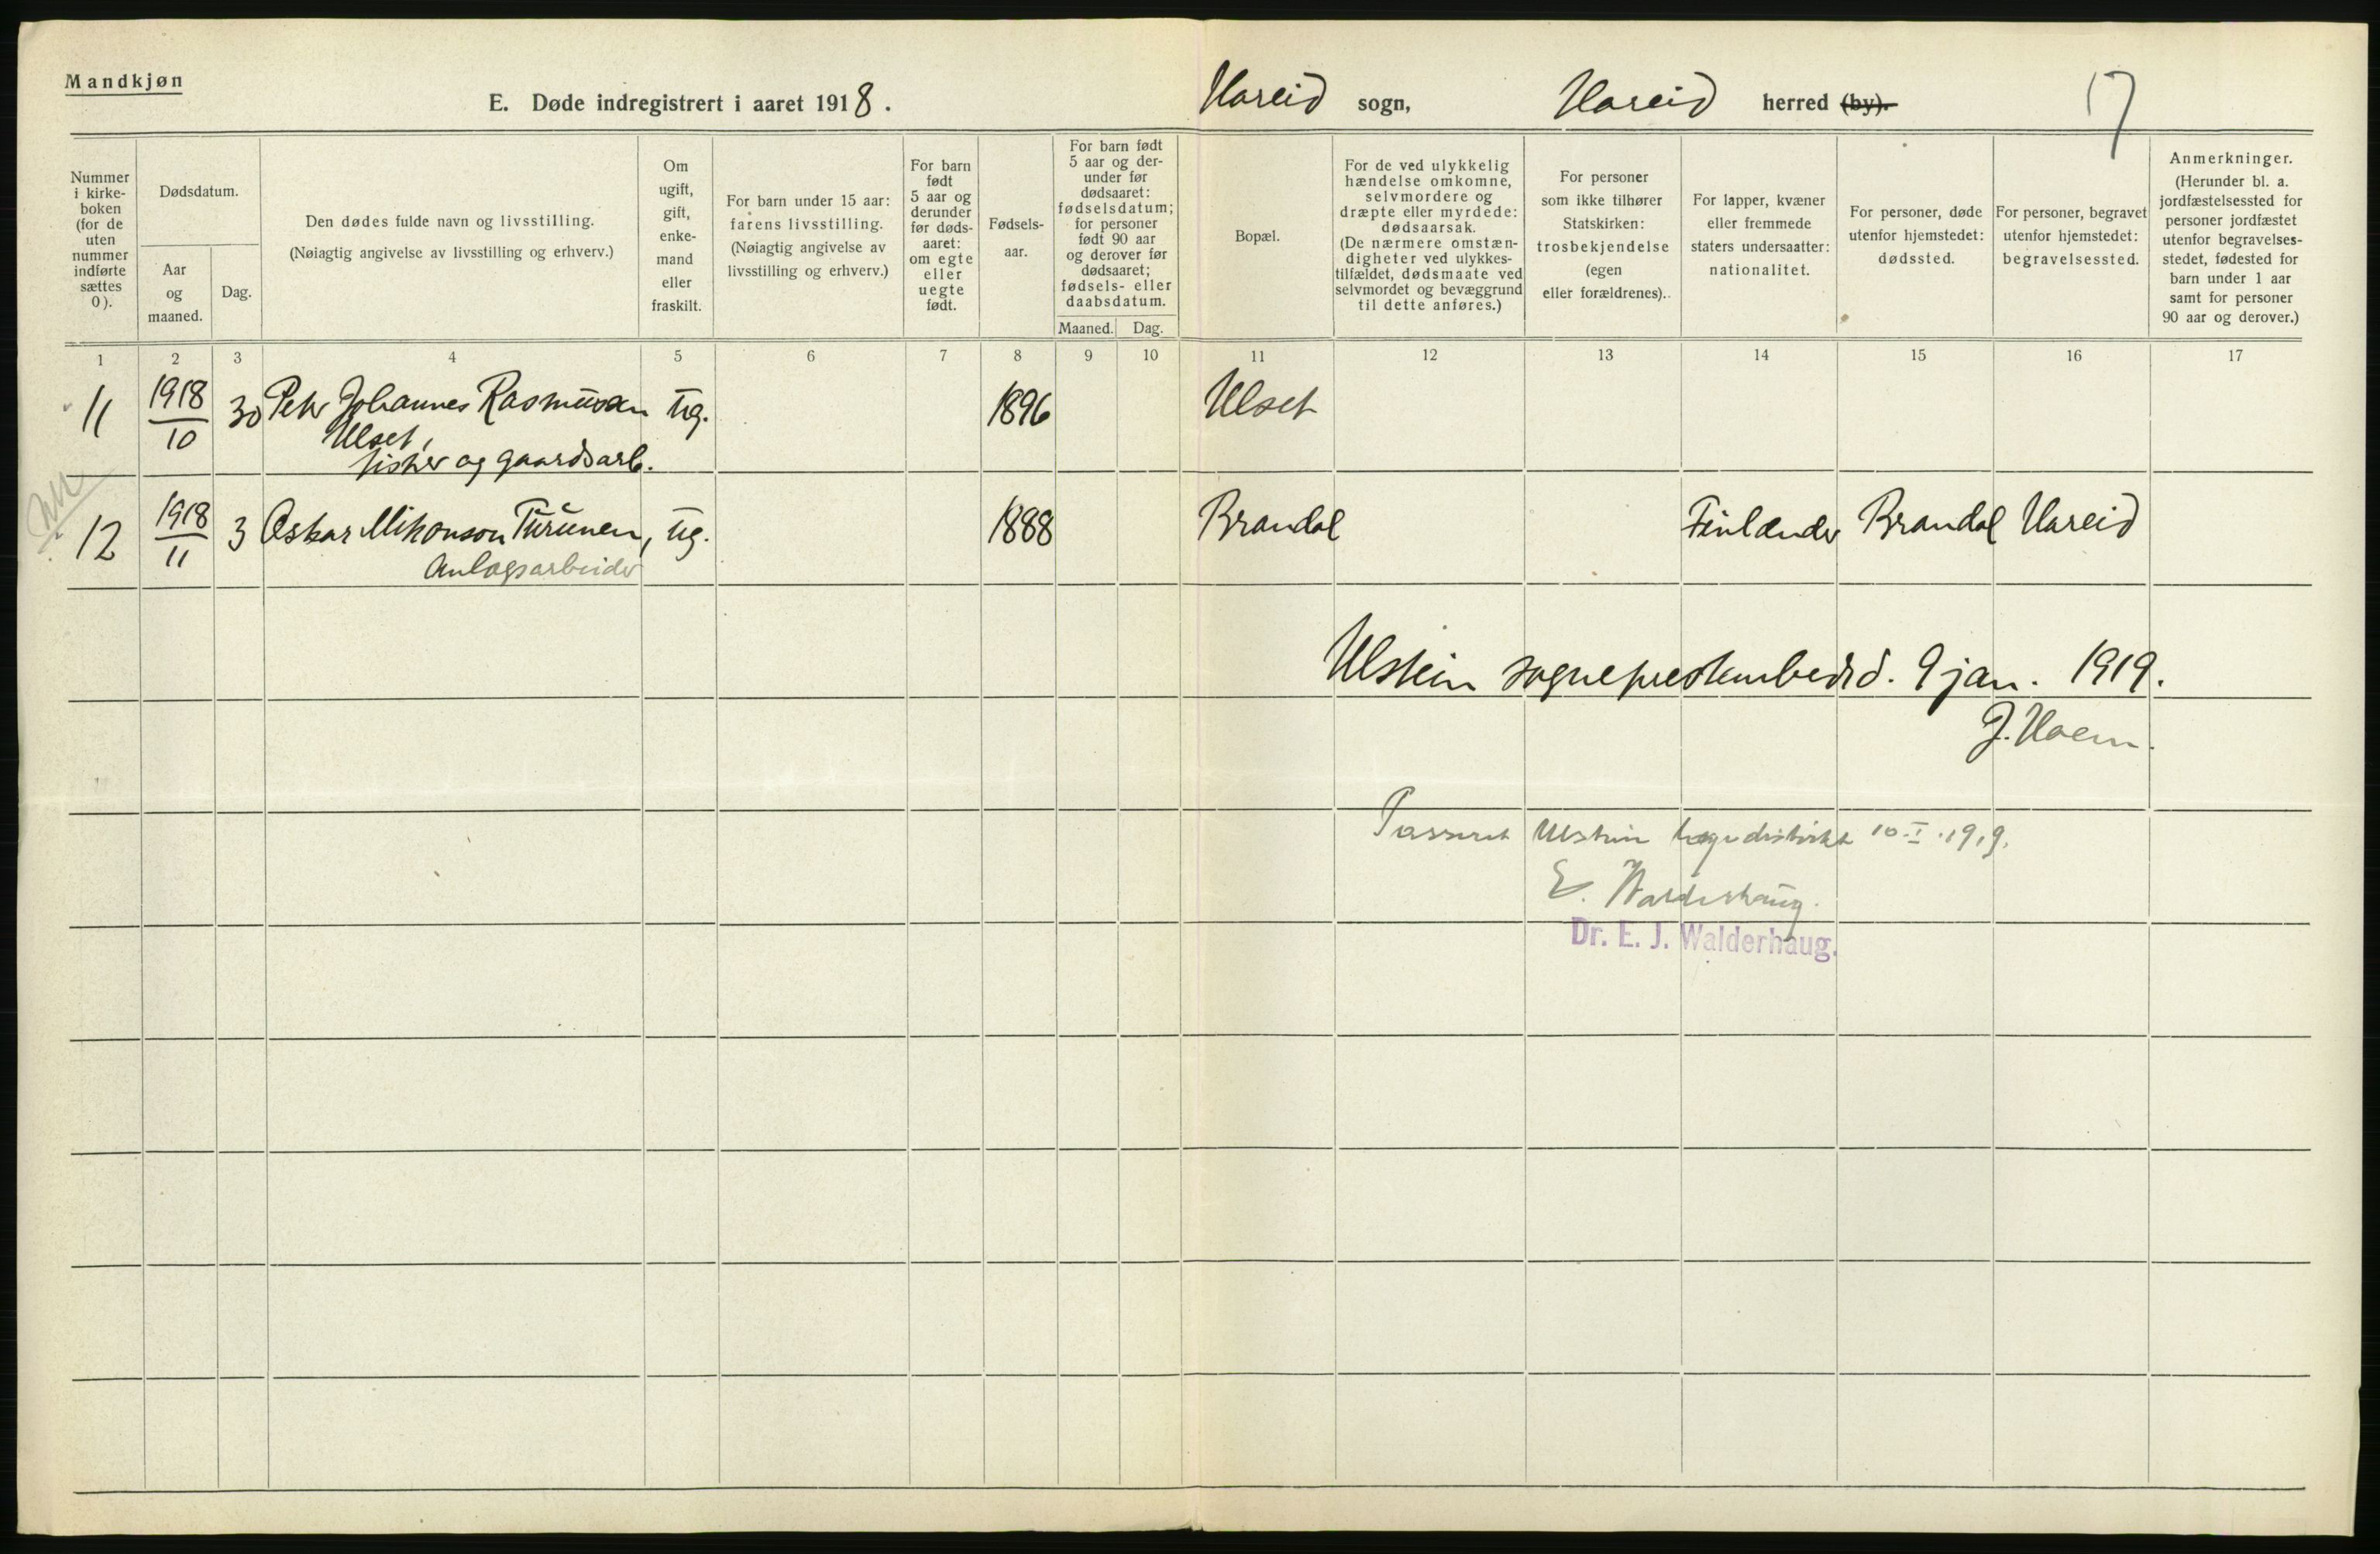 Mandkjøn
E. Døde indregistrert i aaret 1918.
Hareid sogn, Hareid herred (by).
17
Nummer i kirke-boken (for de uten nummer indførte sættes 0).
Dødsdatum.
Aar og maaned.
Dag.
Den dødes fulde navn og livsstilling.
(Nøiagtig angivelse av livsstilling og erhverv.)
Om ugift, gift, enke-mand eller fraskilt.
For barn under 15 aar: farens livsstilling.
(Nøiagtig angivelse av livsstilling og erhverv.)
For barn født 5 aar og derunder før døds-aaret: om egte eller uegte født.
Fødsels-aar.
For barn født 5 aar og der-under før dødsaaret: fødselsdatum; for personer født 90 aar og derover før dødsaaret; fødsels- eller daabsdatum.
Maaned. Dag.
Bopæl.
For de ved ulykkelig hændelse omkomne, selvmordere og dræpte eller myrdede: dødsaarsak.
(De nærmere omstæn-digheter ved ulykkes-tilfældet, dødsmaate ved selvmordet og bevæggrund til dette anføres.)
For personer som ikke tilhører Statskirken: trosbekjendelse (egen eller forældrenes).
For lapper, kvæner eller fremmede staters undersaatter: nationalitet.
For personer, døde utenfor hjemstedet: dødssted.
For personer, begravet utenfor hjemstedet: begravelsessted.
Anmerkninger.
(Herunder bl. a. jordfæstelsessted for personer jordfæstet utenfor begravelses-stedet, fødested for barn under 1 aar samt for personer 90 aar og derover.)
1 2 3 4 5 6 7 8 9 10 11 12 13 14 15 16 17
11 1918/10 30 Peter Johannes Rasmussen ug. 1896 Ulset
Ulset,
fisker og gaardsarb.
12 1918/11 3 Oskar Mikonson Turunen, ug. 1888 Brandal Finlænder Brandal Hareid
Anlægsarbeider
Ulstein sogneprestembede d. 9 jan. 1919.
J. Hoem.
Passeret Ulstein lægedistrikt 10.I.1919.
E. Walderhaug.
Dr. E. J. Walderhaug.